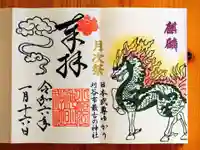 麒麟
月次祭
日本武尊ゆかり
刈谷市最古の神社
奉拝
令和六年
一月二六日